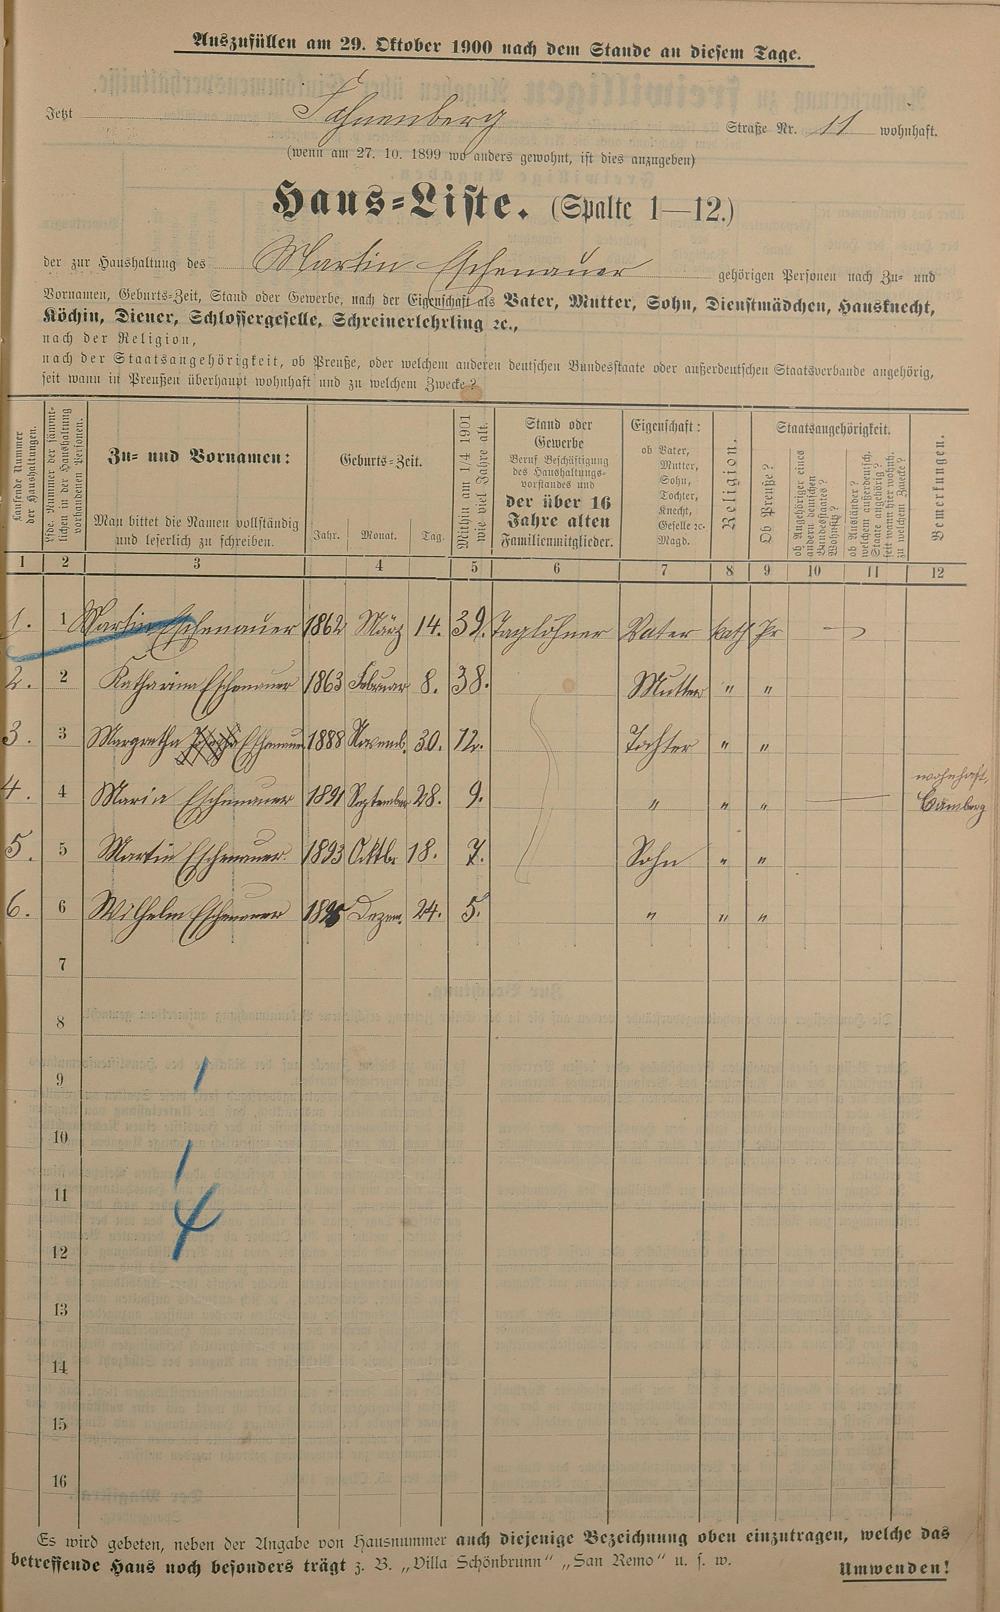 Auszufüllen am 29. Oktober 1900 nach dem Stande an diesem Tage.
Jetzt Straße Nr. 11 wohnhaft.
(wenn am 27. 10. 1899 wo anders gewohnt, ist dies anzugeben)
Haus-Liste. (Spalte 1—12.)
der zur Haushaltung des Martin Eschenauer gehörigen Personen nach Zu- und
Vornamen, Geburts-Zeit, Stand oder Gewerbe, nach der Eigenschaft als Vater, Mutter, Sohn, Dienstmädchen, Hausknecht,
Köchin, Diener, Schlossergeselle, Schreinerlehrling ꝛc.,
nach der Religion,
nach der Staatsangehörigkeit, ob Preuße, oder welchem anderen deutschen Bundesstaate oder außerdeutschen Staatsverbande angehörig,
seit wann in Preußen überhaupt wohnhaft und zu welchem Zwecke?
Laufende Nummer der Haushaltungen.
Lfde. Nummer der sämmtlichen in der Haushaltung vorhandenen Personen.
Zu- und Vornamen:
Man bittet die Namen vollständig
und leserlich zu schreiben.
Geburts-Zeit.
Jahr. Monat. Tag.
Mithin am 1/4 1901 wie viel Jahre alt.
Stand oder
Gewerbe
Beruf Beschäftigung
des Haushaltungs-
vorstandes und
der über 16
Jahre alten
Familienmitglieder.
Eigenschaft:
ob Vater,
Mutter,
Sohn,
Tochter,
Knecht,
Geselle ꝛc.
Magd.
Religion.
Staatsangehörigkeit.
Ob Preuße?
ob Angehöriger eines andern deutschen Bundesstaates? Wohnsitz?
ob Ausländer? welchem außerdeutsch. Staate angehörig? seit wann hier wohnh. zu welchem Zwecke?
Bemerkungen.
1 2 3 4 5 6 7 8 9 10 11 12
1. 1 Martin Eschenauer 1862 März 14. 39. Taglöhner Vater kath Pr
2. 2 Katharina Eschenauer 1863 Februar 8. 38. Mutter " "
3. 3 Margretha Eschenauer 1888 Novemb. 30. 12. Tochter " "
4. 4 Maria Eschenauer 1891 September 28. 9. " " " wohnhaft.
Camberg
5. 5 Martin Eschenauer 1893 Ocktbr 18. 7. Sohn " "
6. 6 Wilhelm Eschenauer 1895 Dezem. 24. 5. " " "
7
8
9
10
11
12
13
14
15
16
Es wird gebeten, neben der Angabe von Hausnummer auch diejenige Bezeichnung oben einzutragen, welche das
betreffende Haus noch besonders trägt z. B. „Villa Schönbrunn“ „San Remo“ u. s. w.
Umwenden!